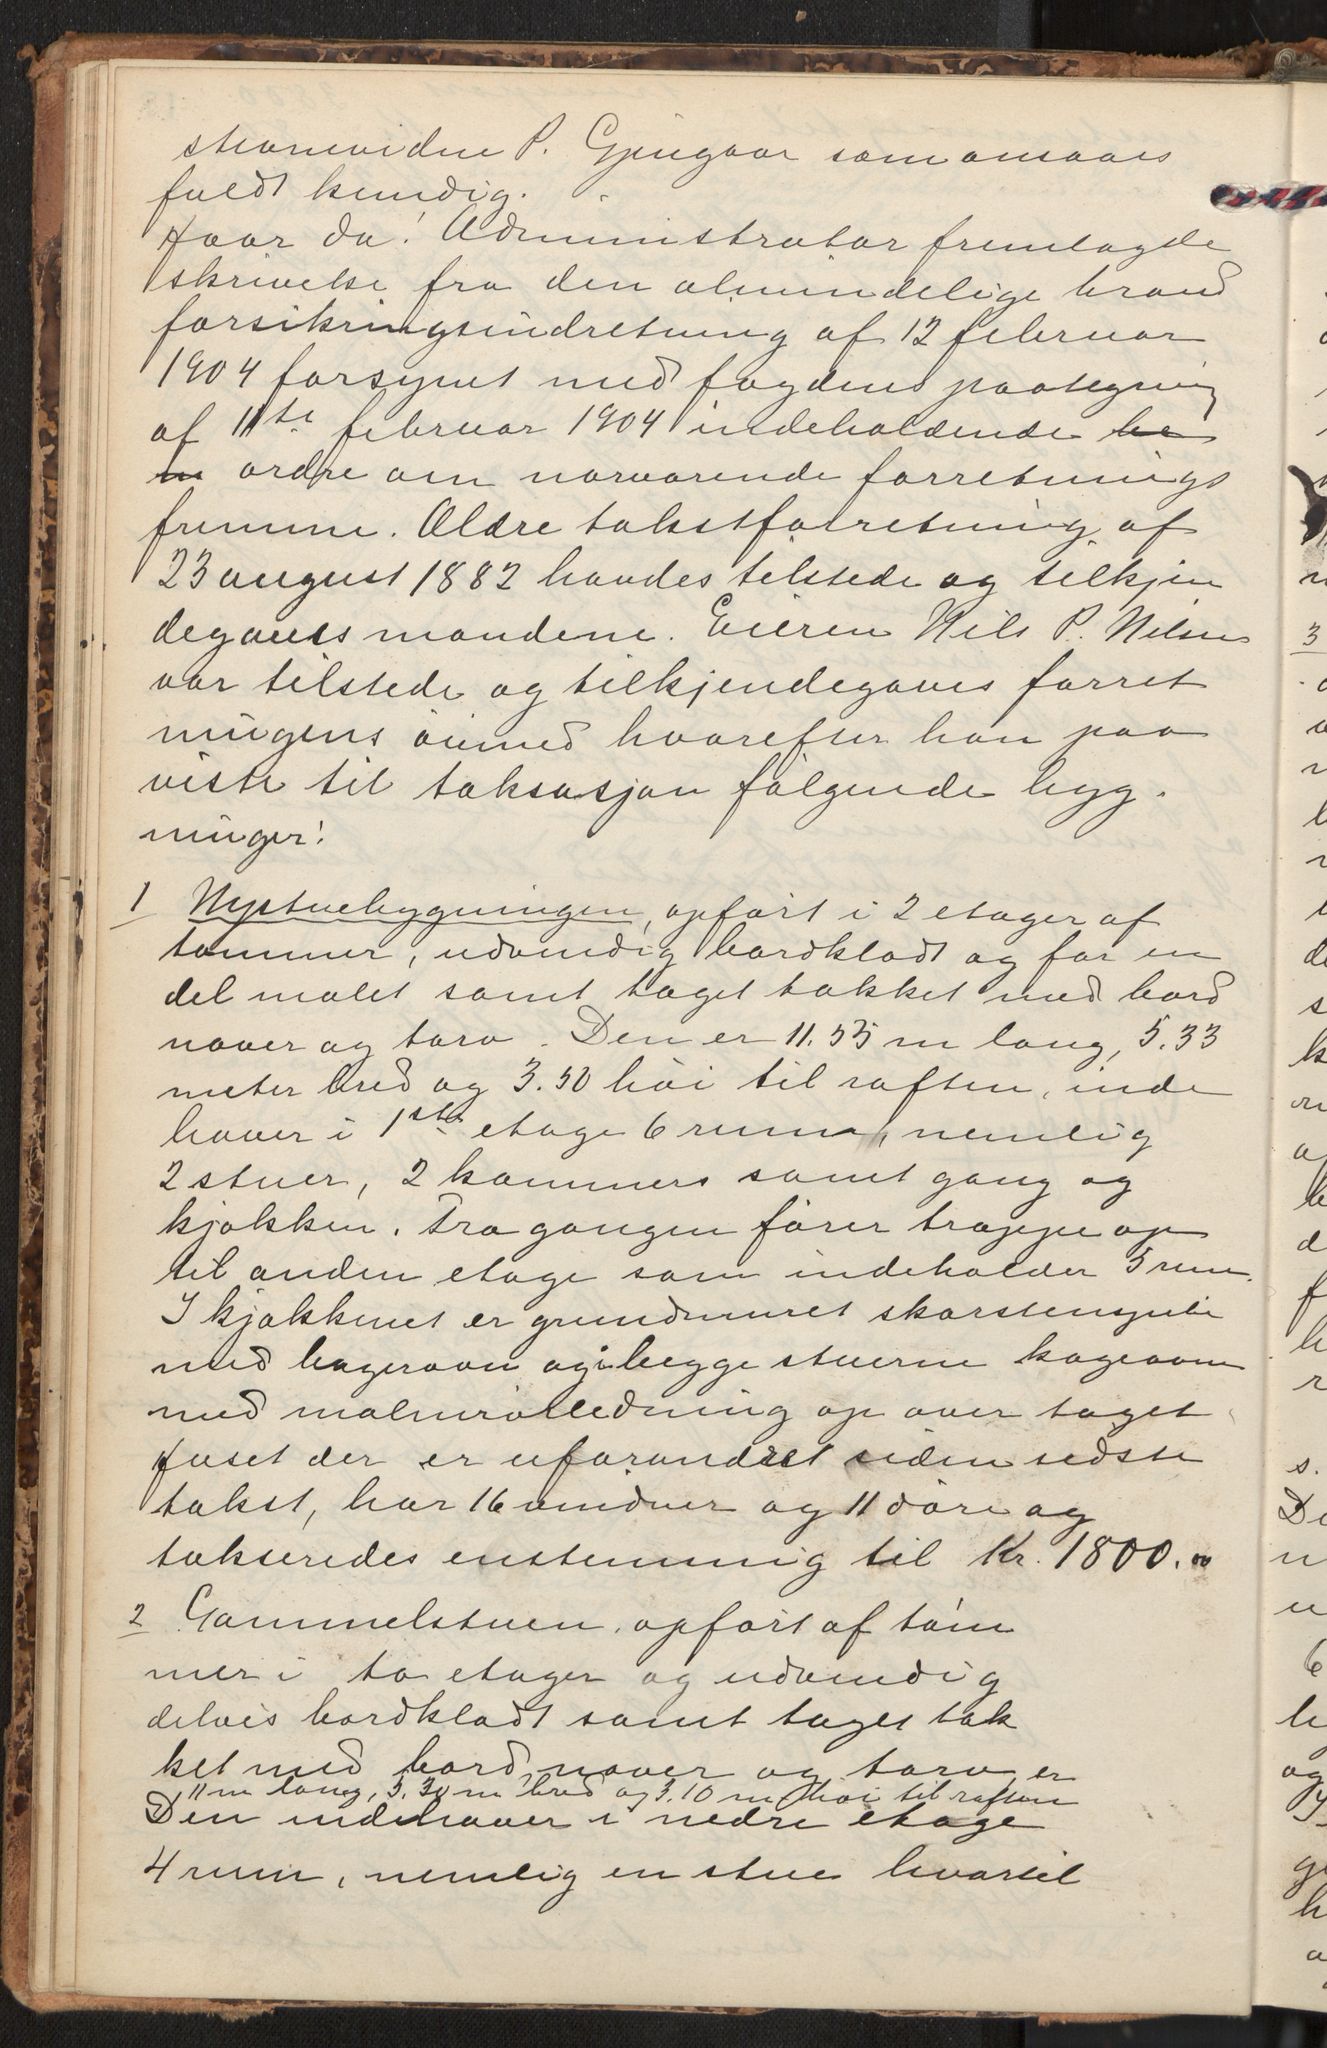 skrivevidne P. Gjengaar som ansaaes
fuldt kundig.
Hvor da! Administrator fremlagde
skrivelse fra den almindelige brand
forsikringsindretning af 12 februar
1904 forsynet med fogdens paategning
af 11te februar 1904 indeholdende be
ordre om nærværende forretnings
fremme. Ældre takstforretning af
23 august 1882 havdes tilstede og tilkjen
degaves mændene. Eieren Nils P. Nilsen
var tilstede og tilkjendegaves forret
ningens öiemed hvorefter han paa
viste til taksasjon fölgende byg.
ninger:
1 Nystuebygningen, opfört i 2 etager af
tömmer, udvendig bordklædt og for en
del malet samt taget tækket med bord
næver og torv. Den er 11.55 m lang, 5.33
meter bred og 3.50 höi til raften, inde
haver i 1ste etage 6 rum, nemlig
2 stuer, 2 kammers samt gang og
kjökken. Fra gangen förer trappe op
til anden etage som indeholder 5 rum.
I kjökkenet er grundmuret skorstenspibe
med bagerovn og i begge stuerne kageovne
med malmrörledning op over taget
Huset der er uforandret siden sidste
takst, har 16 vinduer og 11 döre og
takseredes enstemmig til Kr. 1800.00
2 Gammelstuen, opfört af töm
mer i to etager og udvendig
delvis bordklædt samt taget tæk
ket med bord, næver og torv, er
11 m lang, 5.30 m bred og 3.10 m höi til raften
Den indehaver i nedre etage
4 rum, nemlig en stue hvortil